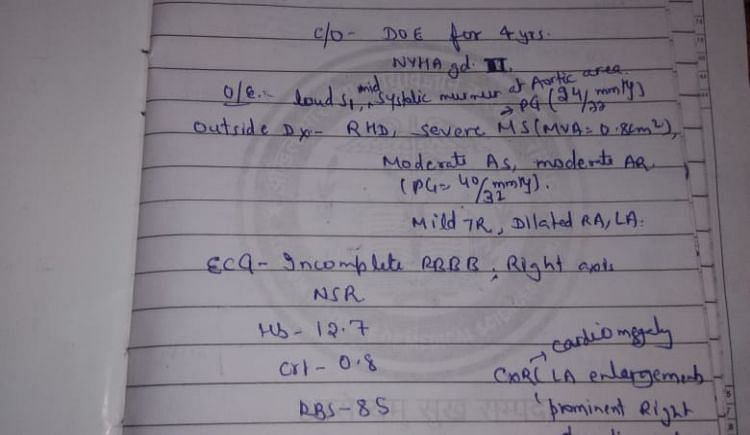 c/o- DOE for 4 yrs.
NYHA gd. II.
O/E:- loud S1, mid systolic murmur at Aortic area
→ PG (24/22 mmHg)
Outside Dx- RHD, severe MS (MVA= 0.8cm2),
Moderate AS, moderate AR
(PG= 40/32 mmHg).
Mild TR, Dilated RA, LA.
ECG- Incomplete RBBB, Right axis
NSR
Hb- 12.7
→ cardiomegaly
Crt- 0.8
CXR( LA enlargement
RBS- 85
prominent Right